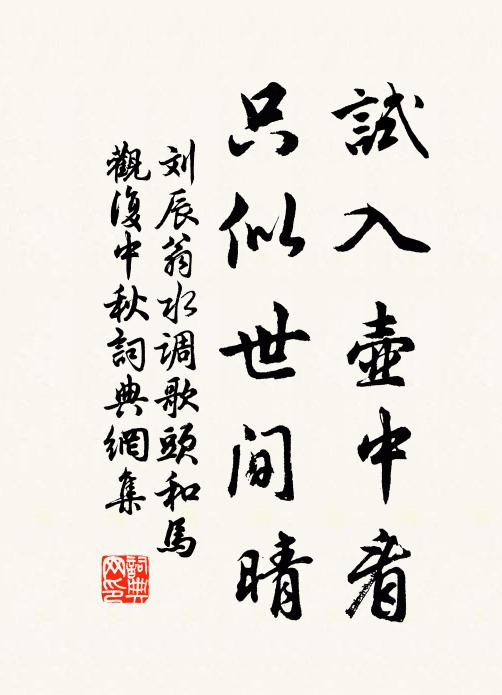 試入壺中看
只似世间晴
刘辰翁水调歌頭和馬
觀復中秋詞典網集
詞典网印